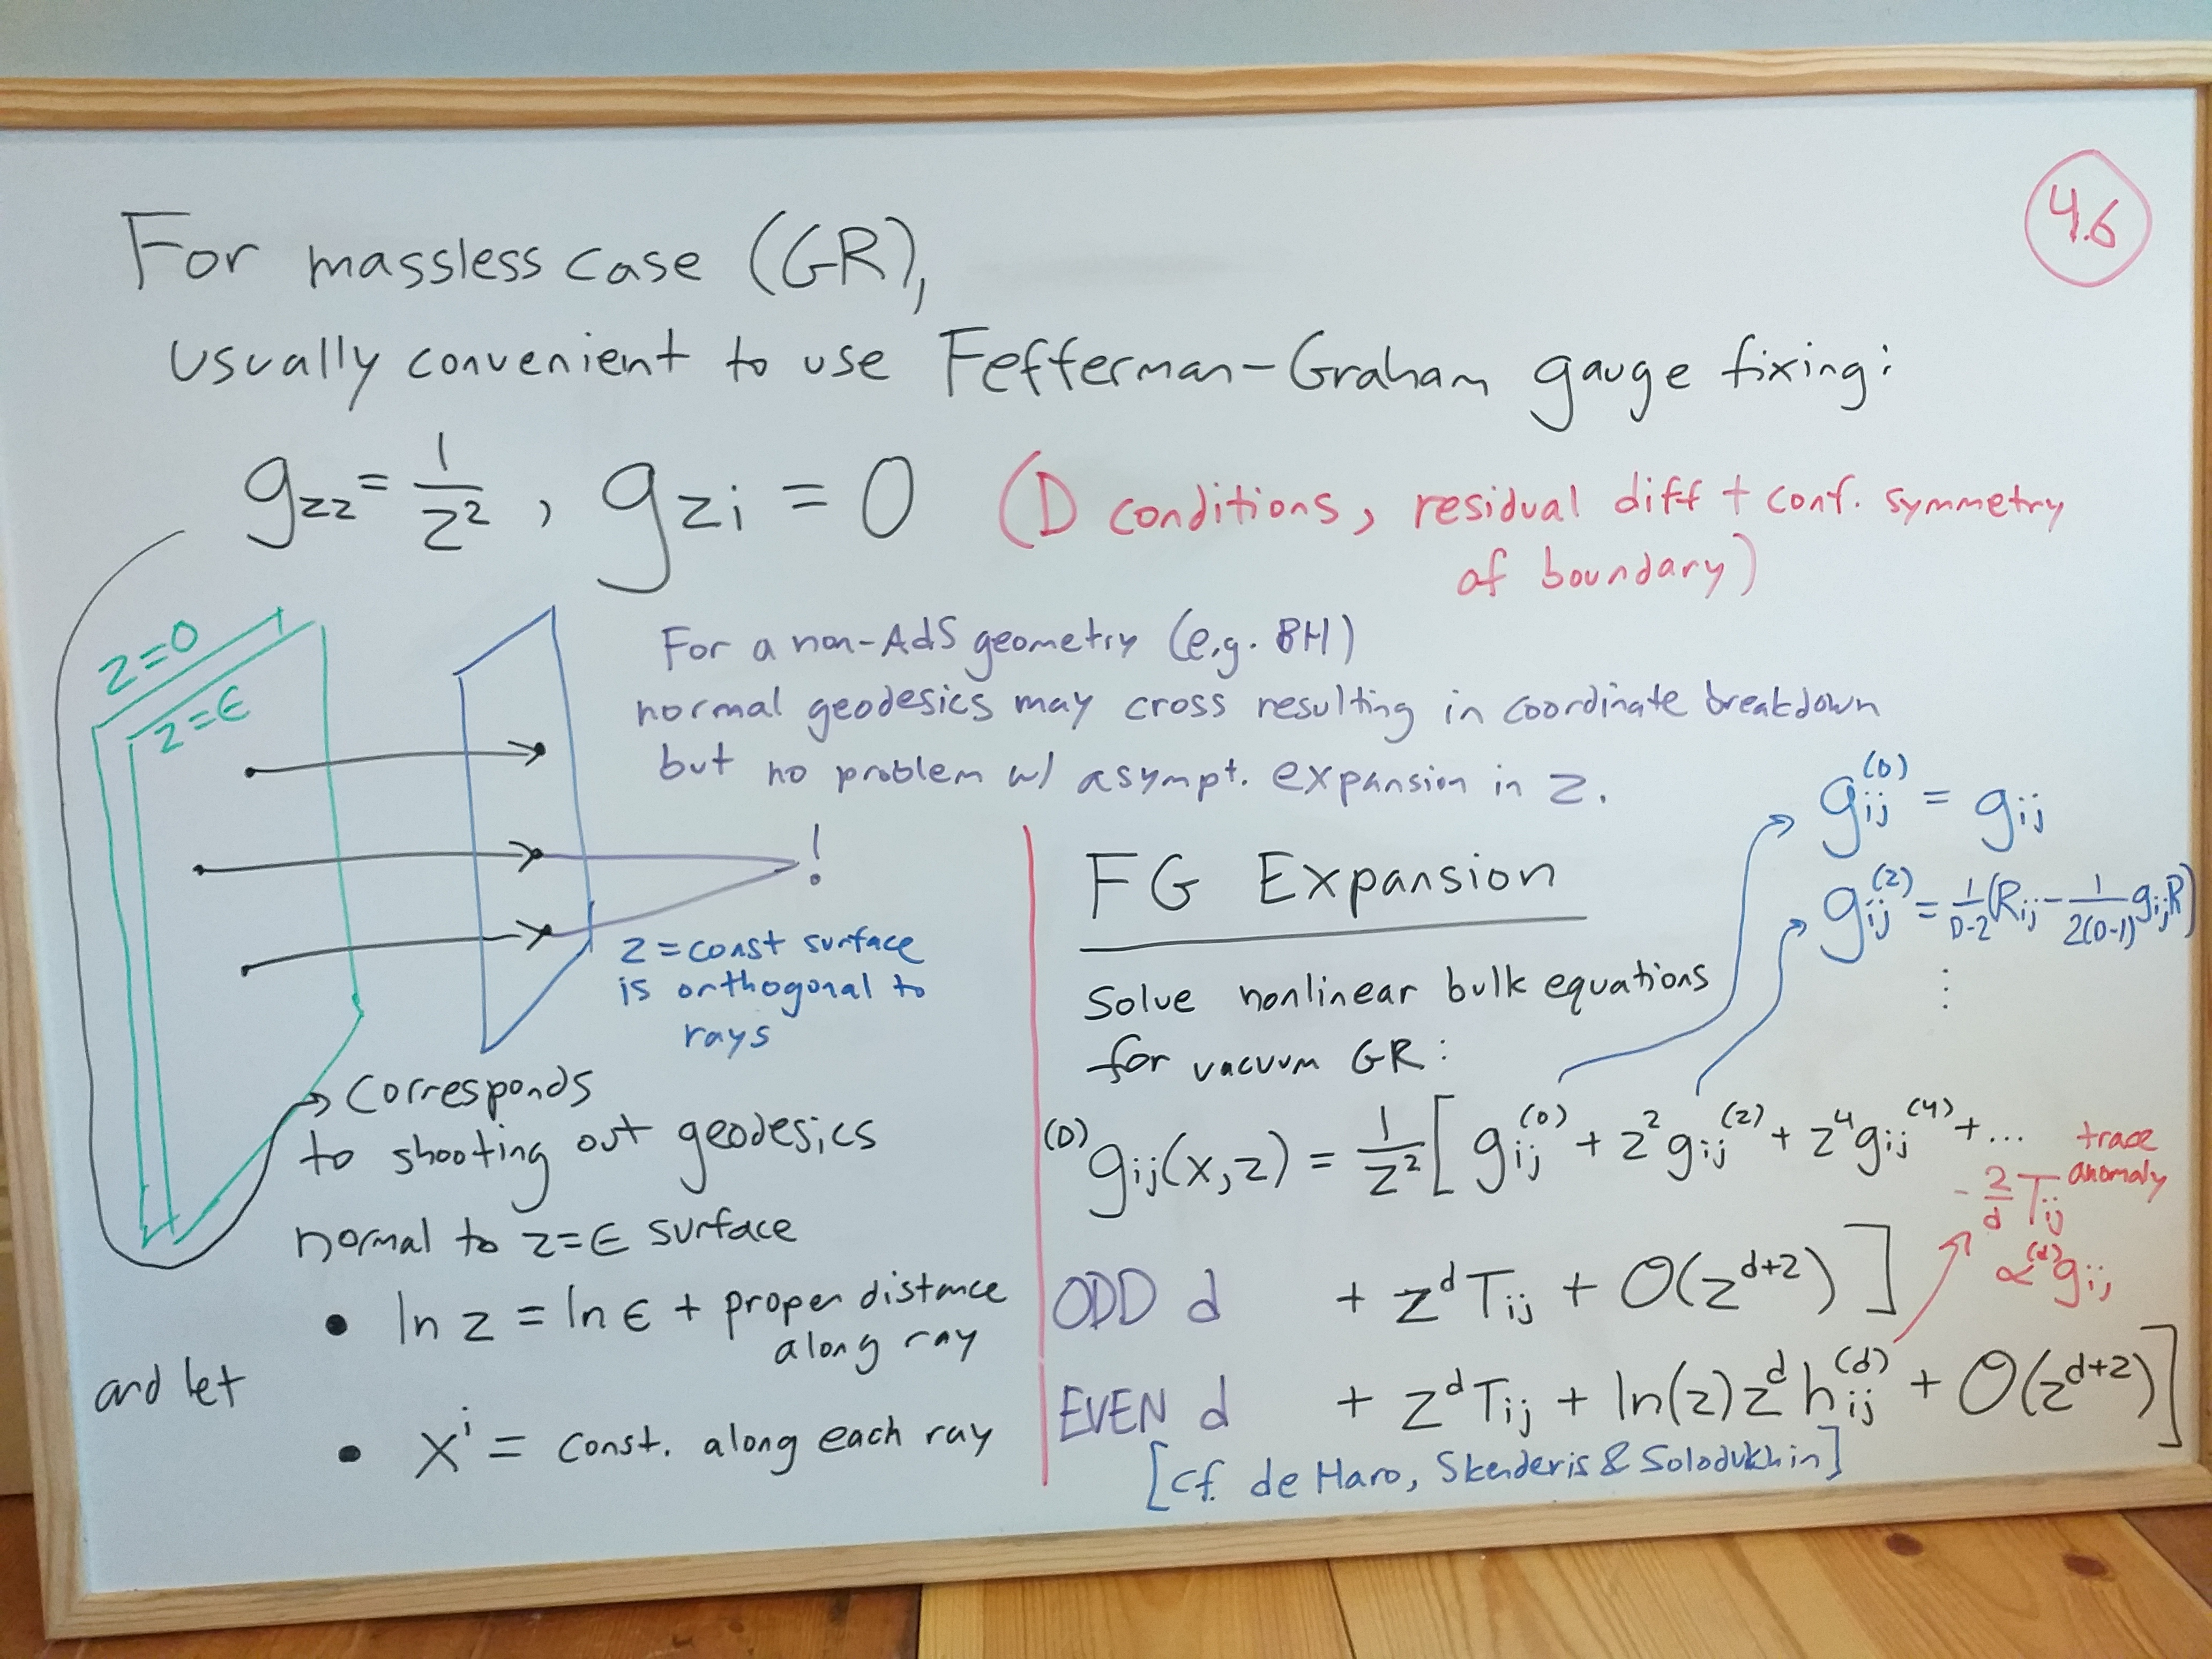 4.6
For massless case (GR),
usually convenient to use Fefferman-Graham gauge fixing:
g_zz = 1/z², g_zi = 0 (D conditions, residual diff + conf. symmetry
of boundary)
For a non-AdS geometry (e.g. BH)
normal geodesics may cross resulting in coordinate breakdown
but no problem w/ asympt. expansion in z.
z=0
z=ϵ
!
z = const surface
is orthogonal to
rays
→ Corresponds
to shooting out geodesics
normal to z=ϵ surface
• ln z = ln ϵ + proper distance
along ray
and let
• x^i = const. along each ray
g_ij^(0) = g_ij
g_ij^(2) = 1/(D-2) (R_ij - 1/(2(D-1)) g_ij R)
⋮
FG Expansion
Solve nonlinear bulk equations
for vacuum GR:
^(D)g_ij(x,z) = 1/z² [ g_ij^(0) + z² g_ij^(2) + z⁴ g_ij^(4) + ...
trace
anomaly
- 2/d T_ij
∝ ^(d)g_ij
ODD d + z^d T_ij + O(z^{d+2}) ]
EVEN d + z^d T_ij + ln(z) z^d h_ij^(d) + O(z^{d+2}) ]
[cf. de Haro, Skenderis & Solodukhin]